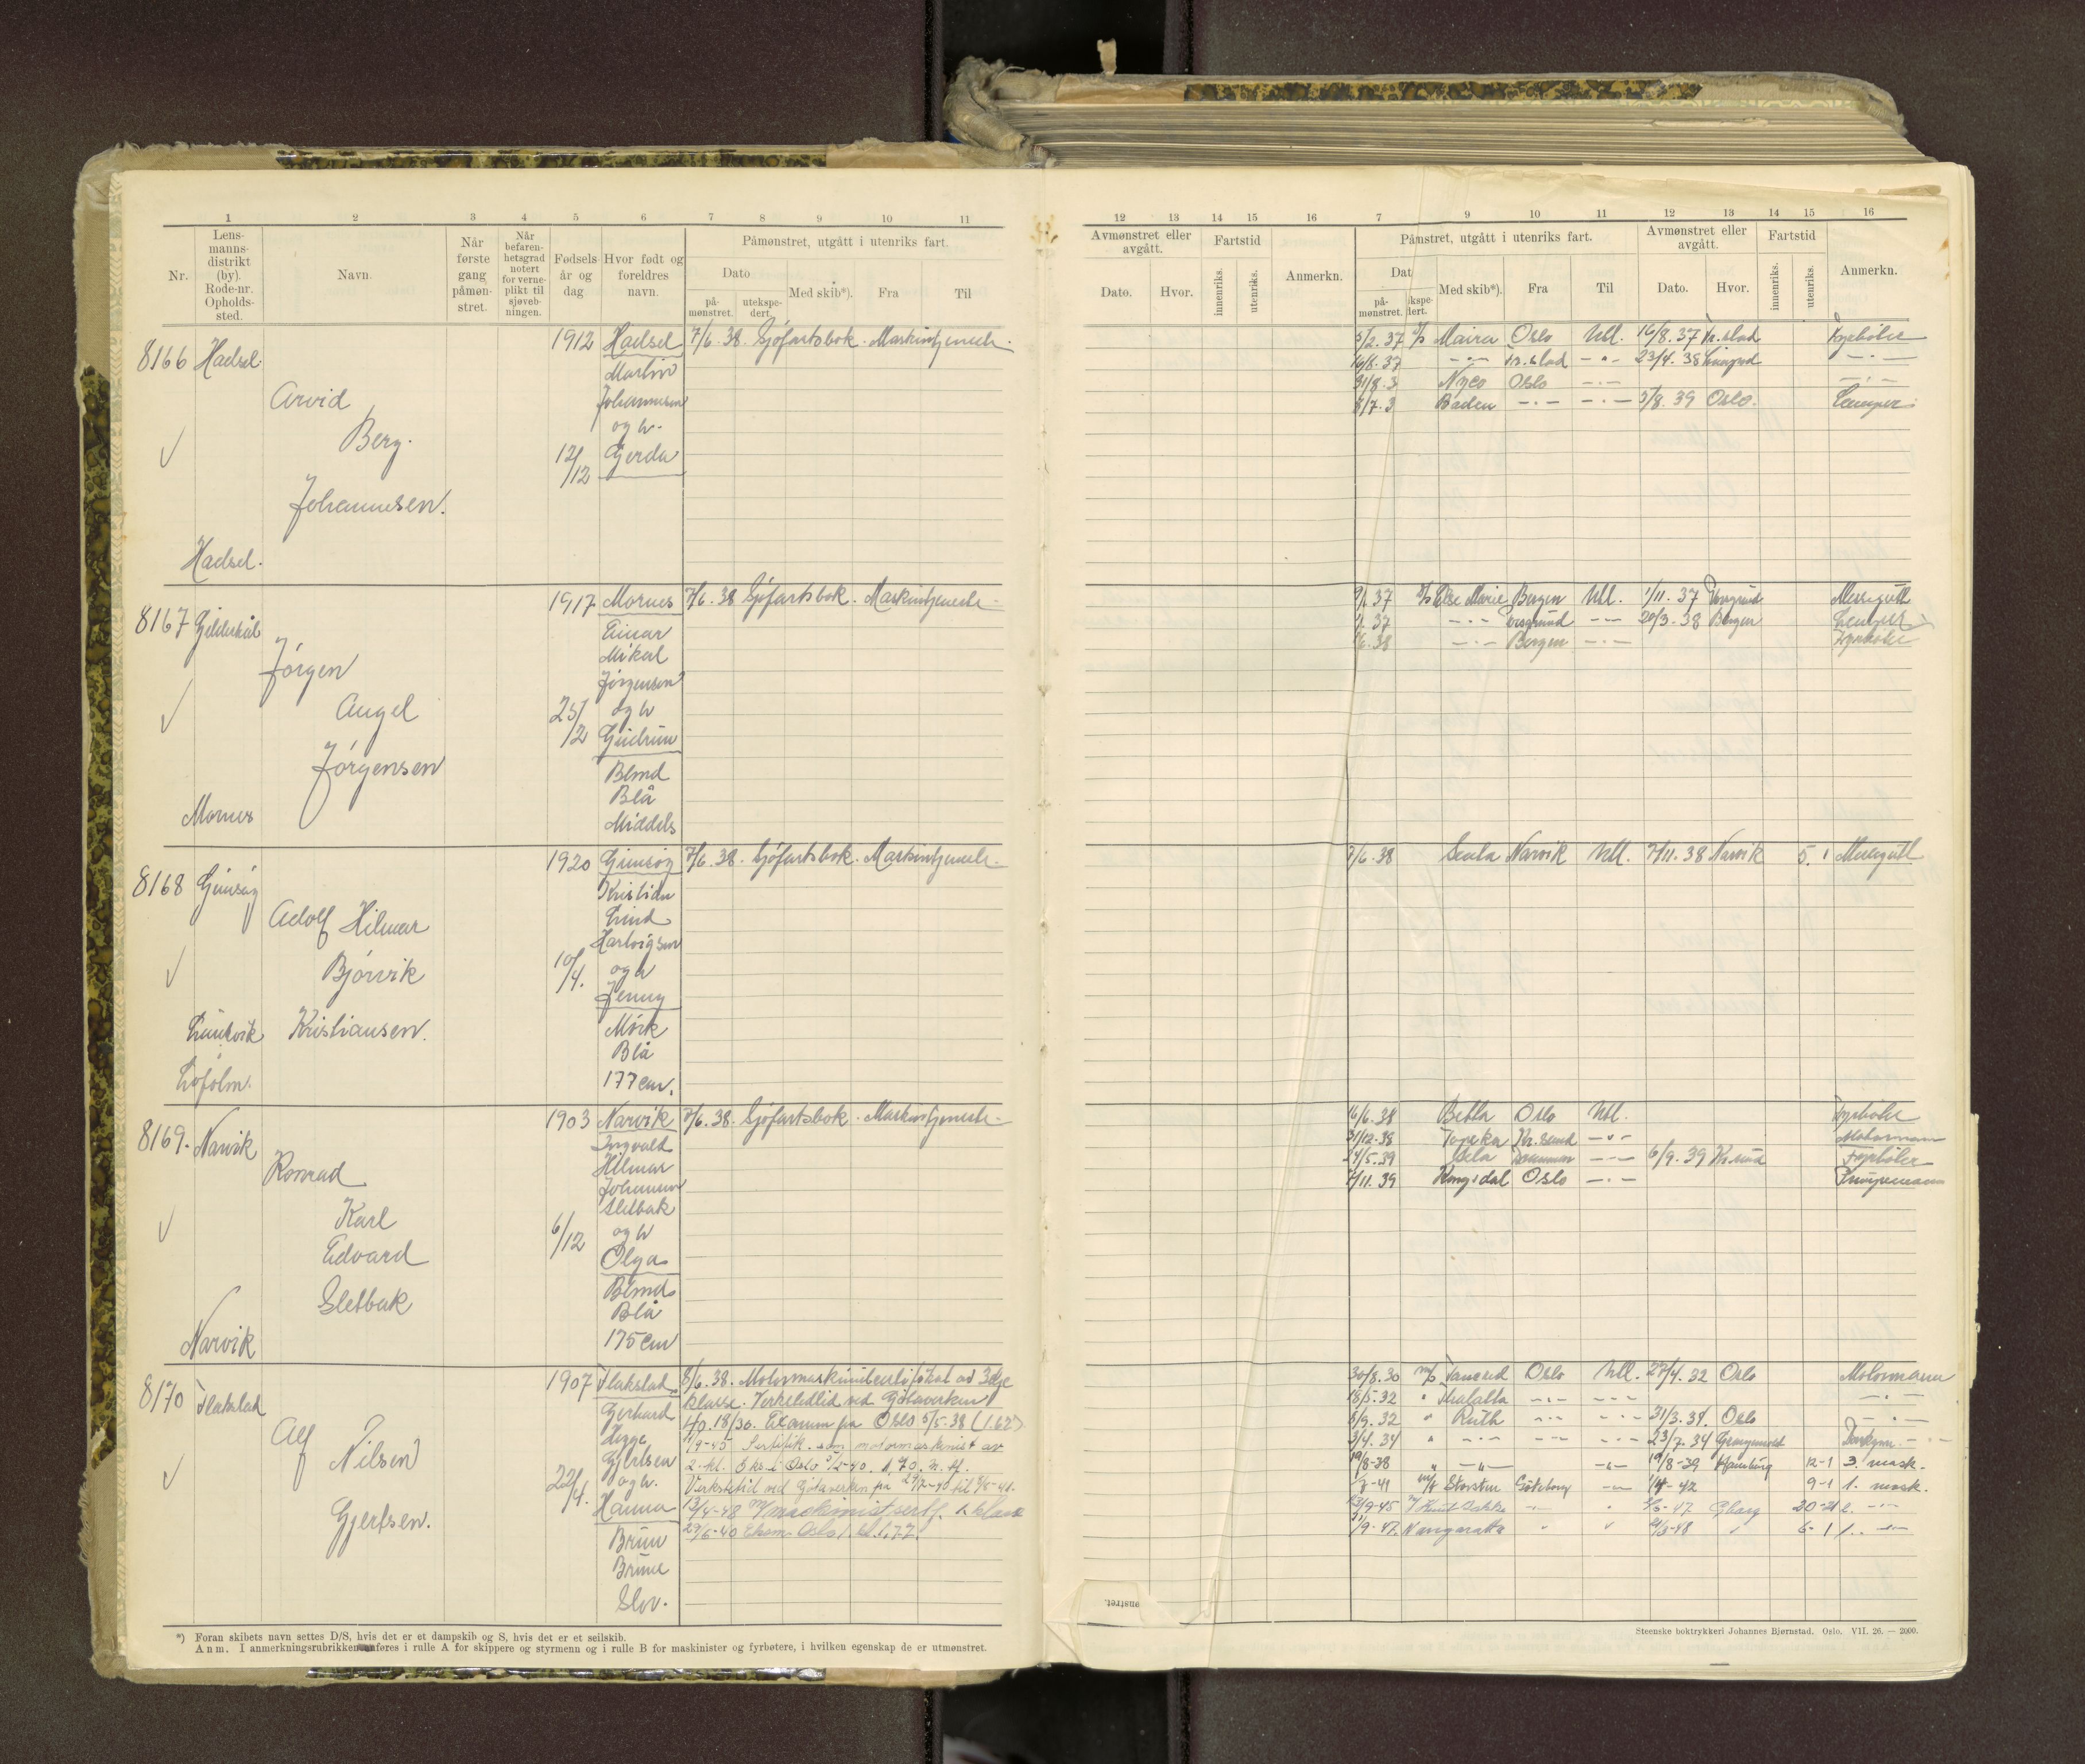 1 2 3 4 5 6 7 8 9 10 11
Nr.
Lens-
manns-
distrikt
(by).
Rode-nr.
Opholds-
sted.
Navn.
Når
første
gang
påmøn-
stret.
Når
befaren-
hetsgrad
notert
for verne-
plikt til
sjøveb-
ningen.
Fødsels-
år og
dag
Hvor født og
foreldres
navn.
Påmønstret, utgått i utenriks fart.
Dato
på-
mønstret.
utekspe-
dert.
Med skib*).
Fra
Til
8166 Hadsel.
Arvid
Berg.
Johannesen.
Hadsel.
1912
12/12
Hadsel
Martin
Johannesen
og h.
Gerda
7/6. 38. Sjøfartsbok. Maskintjeneste.
8167 Gildeskål
Jørgen
Angel
Jørgensen
Mornes
1917
25/12
Mornes
Einar
Mikal
Jørgensen
og h
Gudrun
Blond
Blå
Middels
7/6. 38 Sjøfartsbok. Maskintjeneste.
8168 Gimsøy
Adolf Hilmar
Bjørvik
Kristiansen.
1920
10/4.
Gimsøy
Kristian
Lind
Hartvigsen
og h
Jenny
Mørk
Blå
177 cm.
7/6. 38. Sjøfartsbok. Maskintjeneste.
8169. Narvik
Konrad
Karl
Edvard
Sletbak
Narvik
1903
6/12
Narvik
Ingvald
Hilmar
Johansen
Sletbak
og h
Olga
Blond
Blå
175 cm
7/6. 38. Sjøfartsbok. Maskintjeneste.
8170 Flakstad
Alf
Nilsen
Gjertsen.
1907
22/4.
Flakstad
Gerhard
Zegge
Gjertsen
og h.
Hanna
Brun
Brune
Slov.
8/6. 38. Motormaskinistsertifikat av 3dje
klasse. Verkstedtid ved Götaverken
18/30. Eksamen på Oslo 5/5-38 (1.62)
9-45 Sertifik. som motormaskinist av
2. kl. Eks. i Oslo
Verkstetid ved Götaverken på
13/4-48 maskinistsertf. 1. klasse
29/6-40 Eksm. Oslo 1. kl. 1.77.
*) Foran skibets navn settes D/S, hvis det er et dampskib og S, hvis det er et seilskib.
Anm. I anmerkningsrubrikken anføres i rulle A for skippere og styrmenn og i rulle B for maskinister og fyrbøtere, i hvilken egenskap de er utmønstret.
12 13 14 15 16 7 9 10 11 12 13 14 15 16
Avmønstret eller
avgått.
Dato.
Hvor.
Fartstid
innenriks.
utenriks.
Anmerkn.
Påmstret, utgått i utenriks fart.
Dat
på-
mønstret.
kspe-
dert.
Med skib*).
Fra
Til
Avmønstret eller
avgått.
Dato.
Hvor.
Fartstid
innenriks.
utenriks.
Anmerkn.
5/2. 37 Maira Oslo Utl. 16/8. 37 Fr.stad Fyrbøter
16/8. 37 -"- Fr.stad -"- 23/4. 38 -"-
31/8. 3 Nyco Oslo -"- -"-
8/7. 3 Baden -"- -"- 5/8. 39 Oslo. Lemper
37 Else Marie Bergen Utl. 1/11. 37 Porsgrund Messegutt
37 -"- orsgrund -"- 20/3. 38 Bergen Lemper
6.38 -"- Bergen -"- Fyrbøter
7/6. 38 Narvik Utl. 7/11. 38 Narvik 5. 1 Messegutt
16/6. 38 Betta Oslo Utl. Fyrbøter
31/12. 38 Topeka Kr.sund -"- Motormann
24/5. 39 Drammen -"- 6/9. 39 Kr.sund Fyrbøter
11. 39 Kongsdal Oslo -"- Pumpemann
30/8. 30 m/s Tancred Oslo Utl. 27/4. 32 Oslo Motormann
18/5. 32 " Thalatta -"- -"- -"-
8/9. 32 " Ruth -"- -"- 31/3. 34. Oslo -"-
3/4. 34 " -"- -"- -"- 23/7. 34 Donkeym. -"-
19/8-38 " -"- -"- 19/8-39 Hamburg 12-1 3. mask.
7-41 m/t Storsten Göteborg -"- 1/4-42 9-1 1. mask.
13/9-45 Knut Bakke -"- " 5/3-47 Gbarg 20-21 2. -"-
1/9-47. Wangaratta " " 21/3-48 " 6-1 1. -"-
ønstret.
Steenske boktrykkeri Johannes Bjørnstad. Oslo. VII. 26. — 2000.